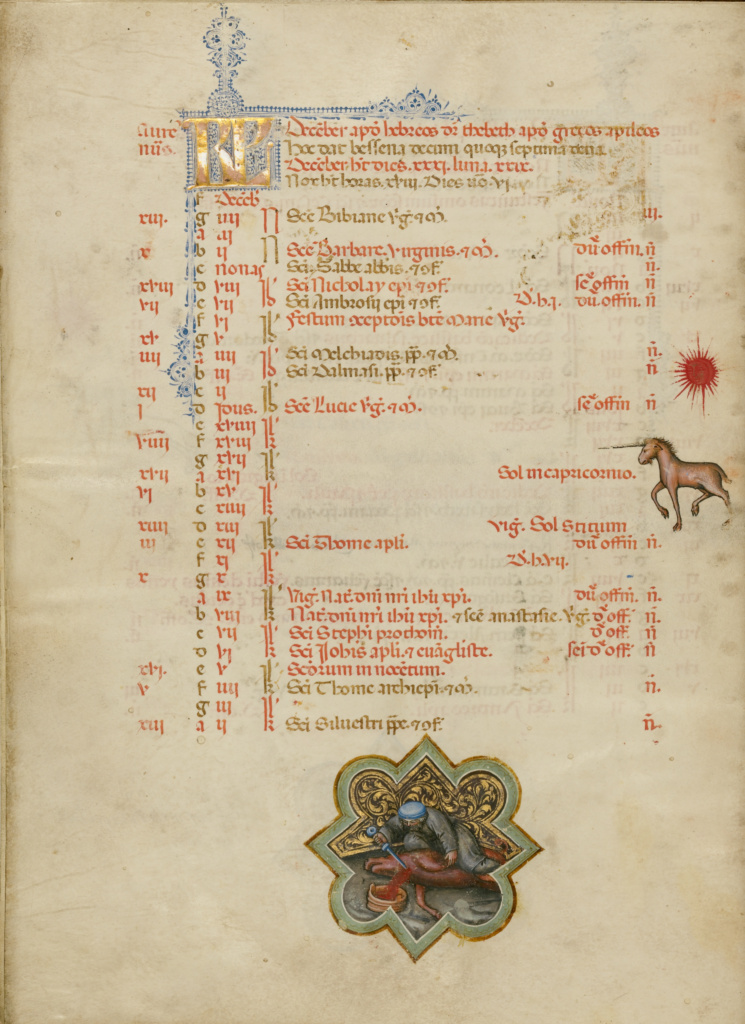 Aure Decēber apō hebreos dr̄ thebeth apō grecos apileos
nus. Hoc dat bessena decim quoqꝫ septima dena
KL Decēber. ht̄ dies. xxxi. luna. xxix.
Nox ht̄ horas. xviii. Dies uō. vi.
f Decēb
xiii. g iiii N Scē Bibiane ṽg̃. ⁊ m̃. iii.
a iii
x b ii N Scē Barbare. virginis. ⁊ m̃. du᷒ offm̄. n̄
c nonas Sc̄i Sabbe abb̄is. ⁊ ꝯf̄ n̄.
xviii d viii Id Sc̄i Nicholay ep̄i ⁊ ꝯf̄ se᷒ offm̄. n̄
vii e vii Id Sc̄i Ambrosii ep̄i ⁊ ꝯf̄ D. h. i. du᷒ offm̄. n̄
f vi Id Festum ꝯceptōis btē Marie ṽg̃.
xv. g v Id
iiii a iiii Id Sc̄i Melchiadis. pp̄. ⁊ m̃. n̄.
b iii Id Sc̄i Dalmasi. pp̄. ⁊ ꝯf̄ n̄
xii c ii Id
i d Idus. Scē Lucie ṽg̃. ⁊ m̃. se᷒ offm̄ n̄
e xviiii kl
viiii f xviii kl
g xvii kl
xvii a xvi kl Sol in capricornio.
vi b xv kl
c xiiii kl
xiiii d xiii kl vig̃. Sol sticium
iii e xii kl Sc̄i Thome apl̄i. du᷒ offm̄ n̄.
f xi kl D. h. vii.
x g x kl
a ix kl Vig̃. Nat̄. dn̄i nr̄i ih̄u xp̄i. du᷒ offm̄. n̄
b viii kl Nat̄. dn̄i nr̄i ih̄u xp̄i. ⁊ scē anastasie. ṽg̃. d᷒ off̄. n̄.
c vii kl Sc̄i Stephī prothom̄. d᷒ off̄. n̄
d vi kl Sc̄i Ioh̄is apl̄i. ⁊ euāgliste. sei d᷒ off̄ n̄
xvi. e v kl Sc̄orum innocētum.
v f iiii kl Sc̄i Thome archiep̄i. ⁊ m̃. n̄.
g iii kl
xiii a ii kl Sc̄i Silvestri pp̄e. ⁊ ꝯf̄. n̄.